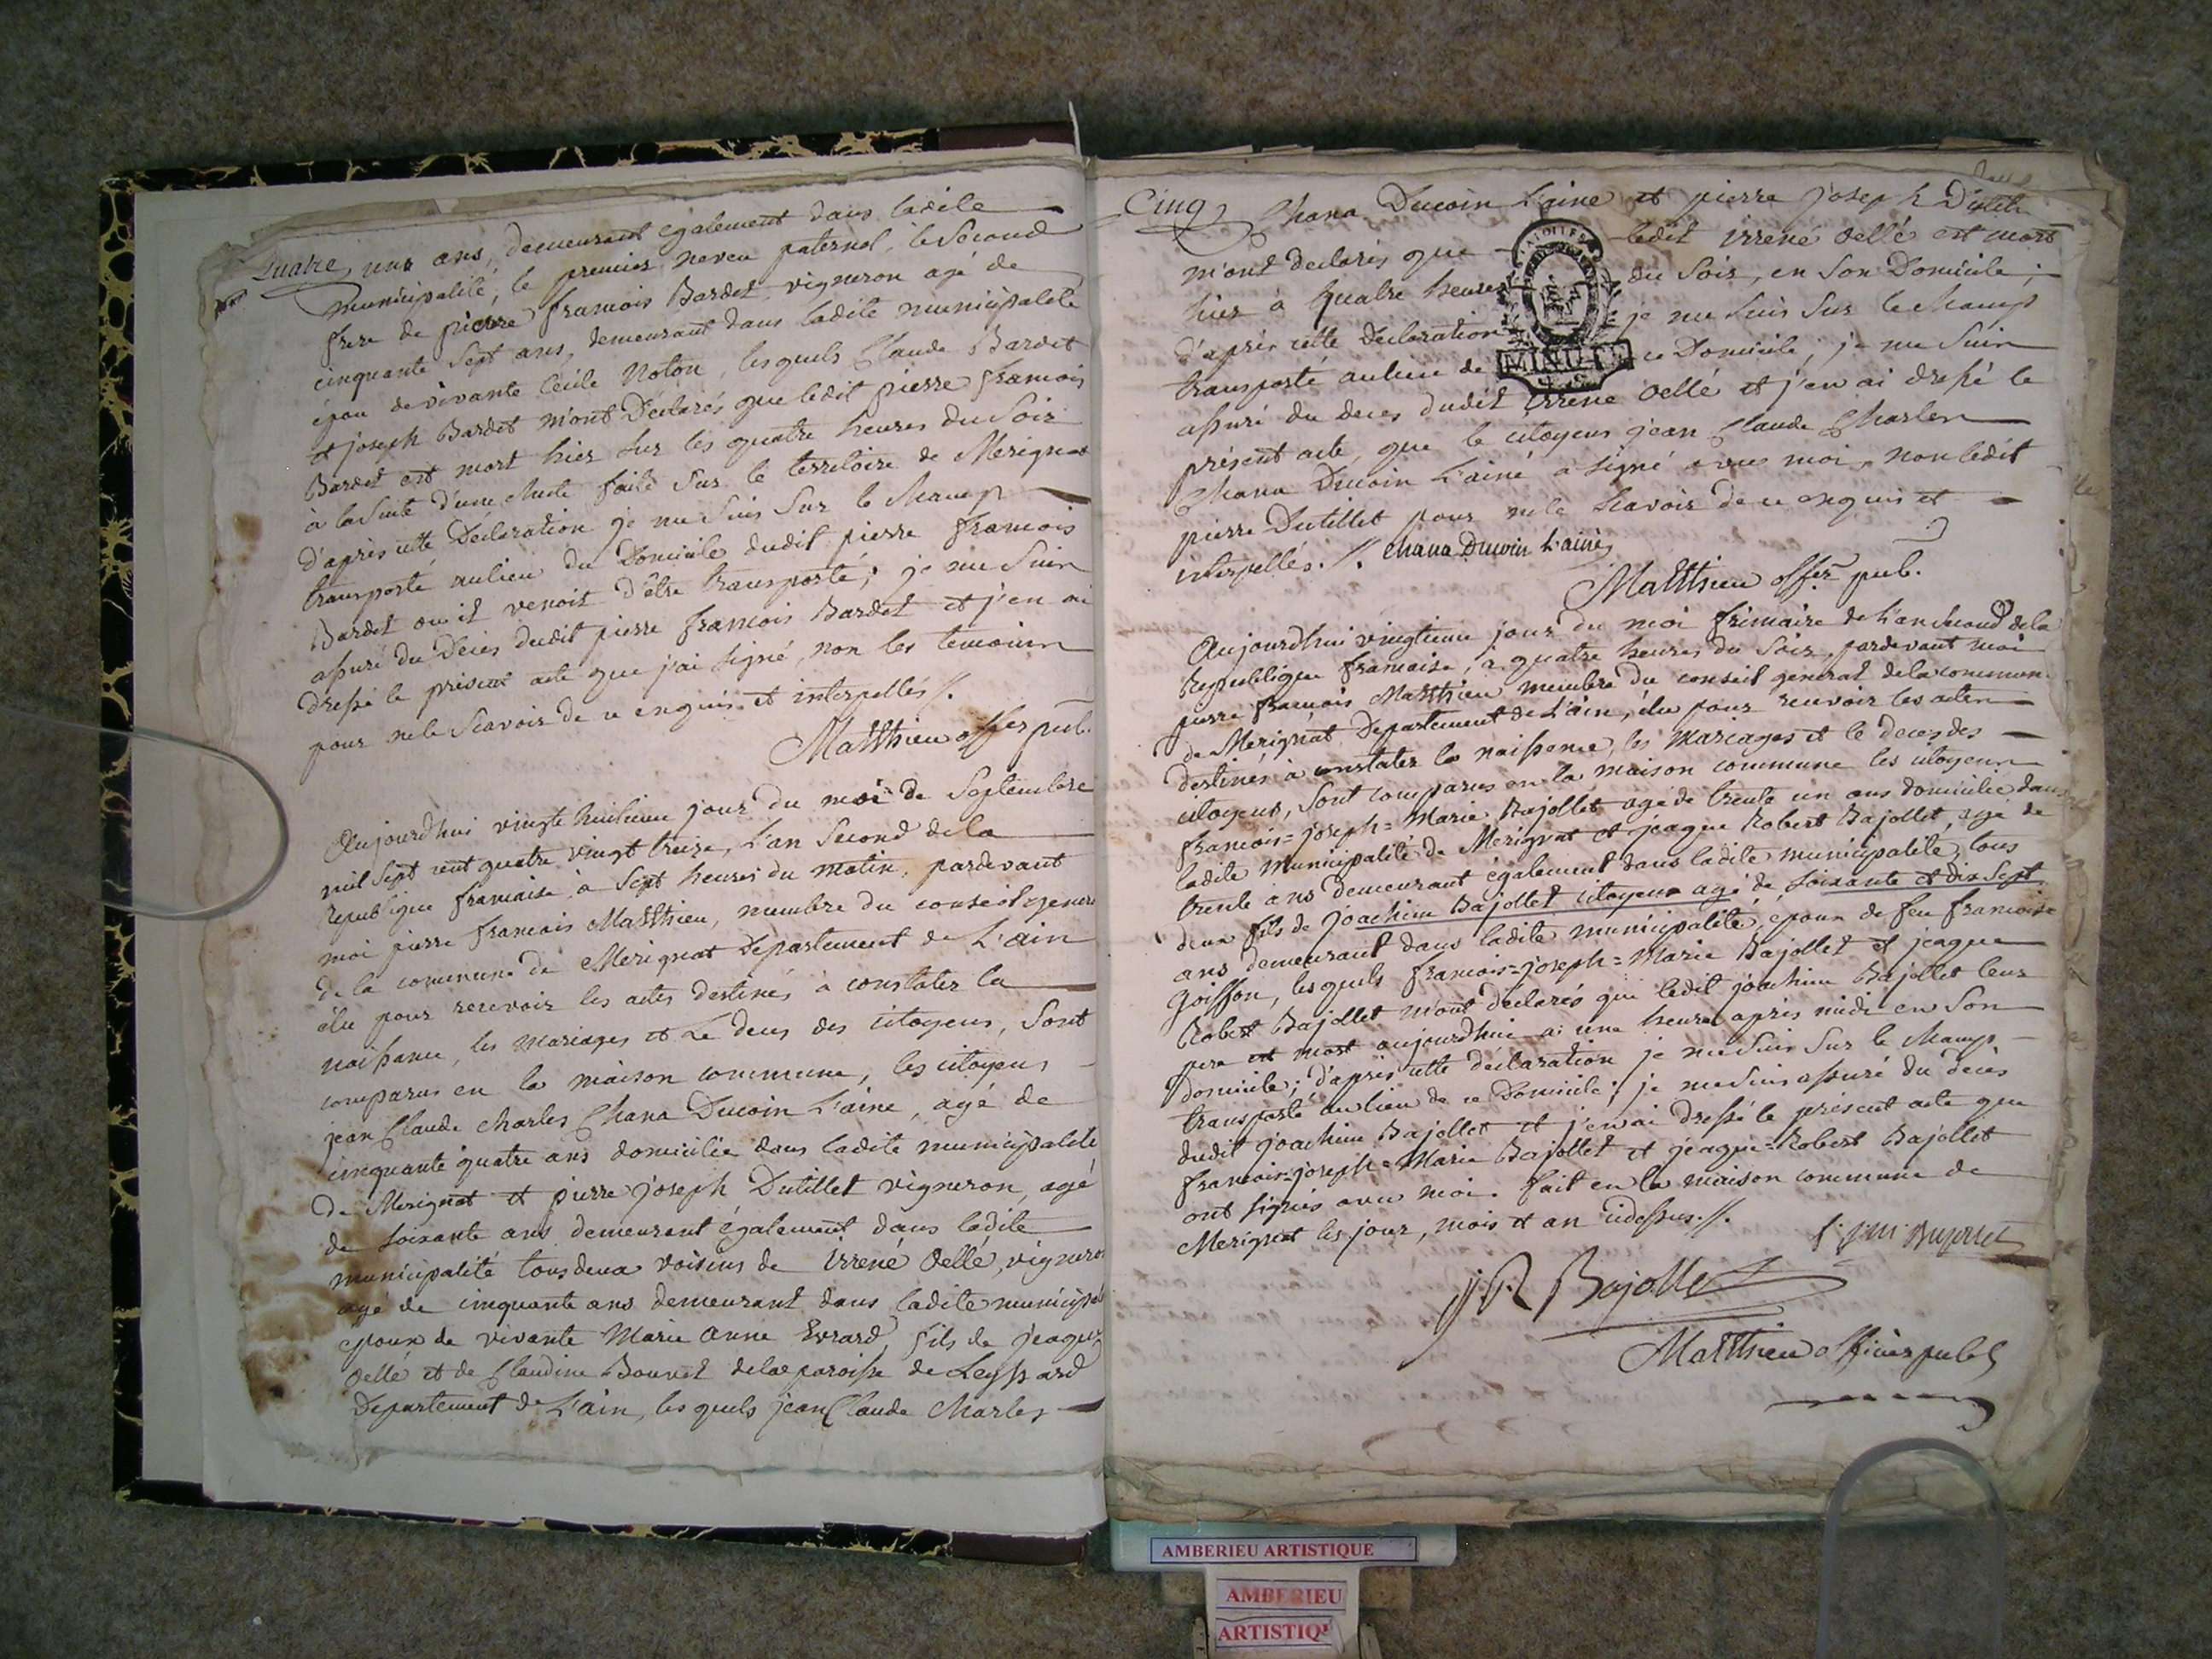 Quatre
uns ans, demeurant egalement dans ladite
municipalité, le premier neveu paternel, le Second
frere de pierre francois Bardet, vigneron agé de
cinquante Sept ans, demeurant dans ladite municipalité
époux de vivante Cécile Noton, lesquels Claude Bardet
et joseph Bardet m'ont Déclarés que ledit pierre francois
Bardet est mort hier sur les quatre heures du Soir
à la Suite d'une chute faite Sur le territoire de Merignat
d'après cette Declaration je me suis Sur le champ
transporté au lieu du Domicile dudit pierre francois
Bardet ou il venoit d'être transporté; je me Suis
assuré du Décès dudit pierre francois Bardet et j'en ai
dressé le présent acte que j'ai signé, non les temoins
pour ne le Scavoir de ce enquis et interpellés ./.
Matthieu offer pub.
Aujourdhui vingt huitieme jour du moi de Septembre
mil Sept cent quatre vingt treize, L'an Second de la
Republique francaise, à Sept heures du matin, pardevant
moi pierre francois Matthieu, membre du conseil general
de la commune de Merignat Departement de L'ain
élu pour recevoir les actes destinés à constater la
naissance, les mariages et Le deces des citoyens, Sont
comparus en la maison commune, les citoyens
jean Claude charles Chana Ducoin L'aine, agé de
cinquante quatre ans domicilié dans ladite municipalité
de Merignat et pierre joseph Dutillet vigneron, agé
de soixante ans demeurant également dans ladite
municipalité tous deux voisins de irrené Oellé, vigneron
agé de cinquante ans demeurant dans ladite municipal
epoux de vivante Marie anne Evrard, fils de jeaque
Oellé et de Claudine Bouvet de la paroisse de Leyssard
Departement de L'ain, les quels jean Claude Charles
Cinq
Chana Ducoin L'aine et pierre joseph Dutillet
m'ont declarés que ledit irrené Oellé est mort
hier à quatre heures du Soir, en Son Domicile;
d'après cette Declaration je me suis Sur le champ
transporté au lieu de ce Domicile; je me Suis
MINUTE
assuré du deces dudit irrené Oellé et j'en ai dressé le
présent acte, que le citoyens jean Claude Charles
Chana Ducoin L'ainé a signé avec moi, non ledit
pierre Dutillet pour ne le scavoir de ce enquis et
interpellés ./. Chana Ducoin L'ainé
Matthieu offer pub.
Aujourdhui vingtieme jour du moi frimaire de L'an second de la
Republique francaise, à quatre heures du Soir, pardevant moi
pierre francois Matthieu membre du conseil general de la commun.
de Merignat Departement de L'ain, élu pour recevoir les actes
destinés à constater la naissance, les mariages et le deces des
citoyens, Sont comparus en la maison commune les citoyens
francois=joseph=Marie Bajollet agé de trente un ans domicilié dans
ladite municipalité de Merignat et jeaque Robert Bajollet, agé de
trente ans demeurant également dans ladite municipalité, tous
deux fils de joachim Bajollet citoyens agé de soixante et dix Sept
ans demeurant dans ladite municipalité, époux de feu francoise
Goiffon, les quels francois=joseph=Marie Bajollet et jeaque
Robert Bajollet m'ont declarés que ledit joachim Bajollet leur
pere est mort aujourdhui a une heure après midi en Son
domicile; d'après cette déclaration je me suis Sur le champ
transporté au lieu de ce Domicile; je me suis assuré du decès
dudit joachim Bajollet et j'en ai dressé le présent acte que
francois=joseph=Marie Bajollet et jeaque=Robert Bajollet
ont signés avec moi. fait en la maison commune de
Merignat les jour, mois et an cidessus ./.
Bajollet
J R Bajollet
Matthieu officier public
AMBERIEU ARTISTIQUE
AMBERIEU
ARTISTIQ